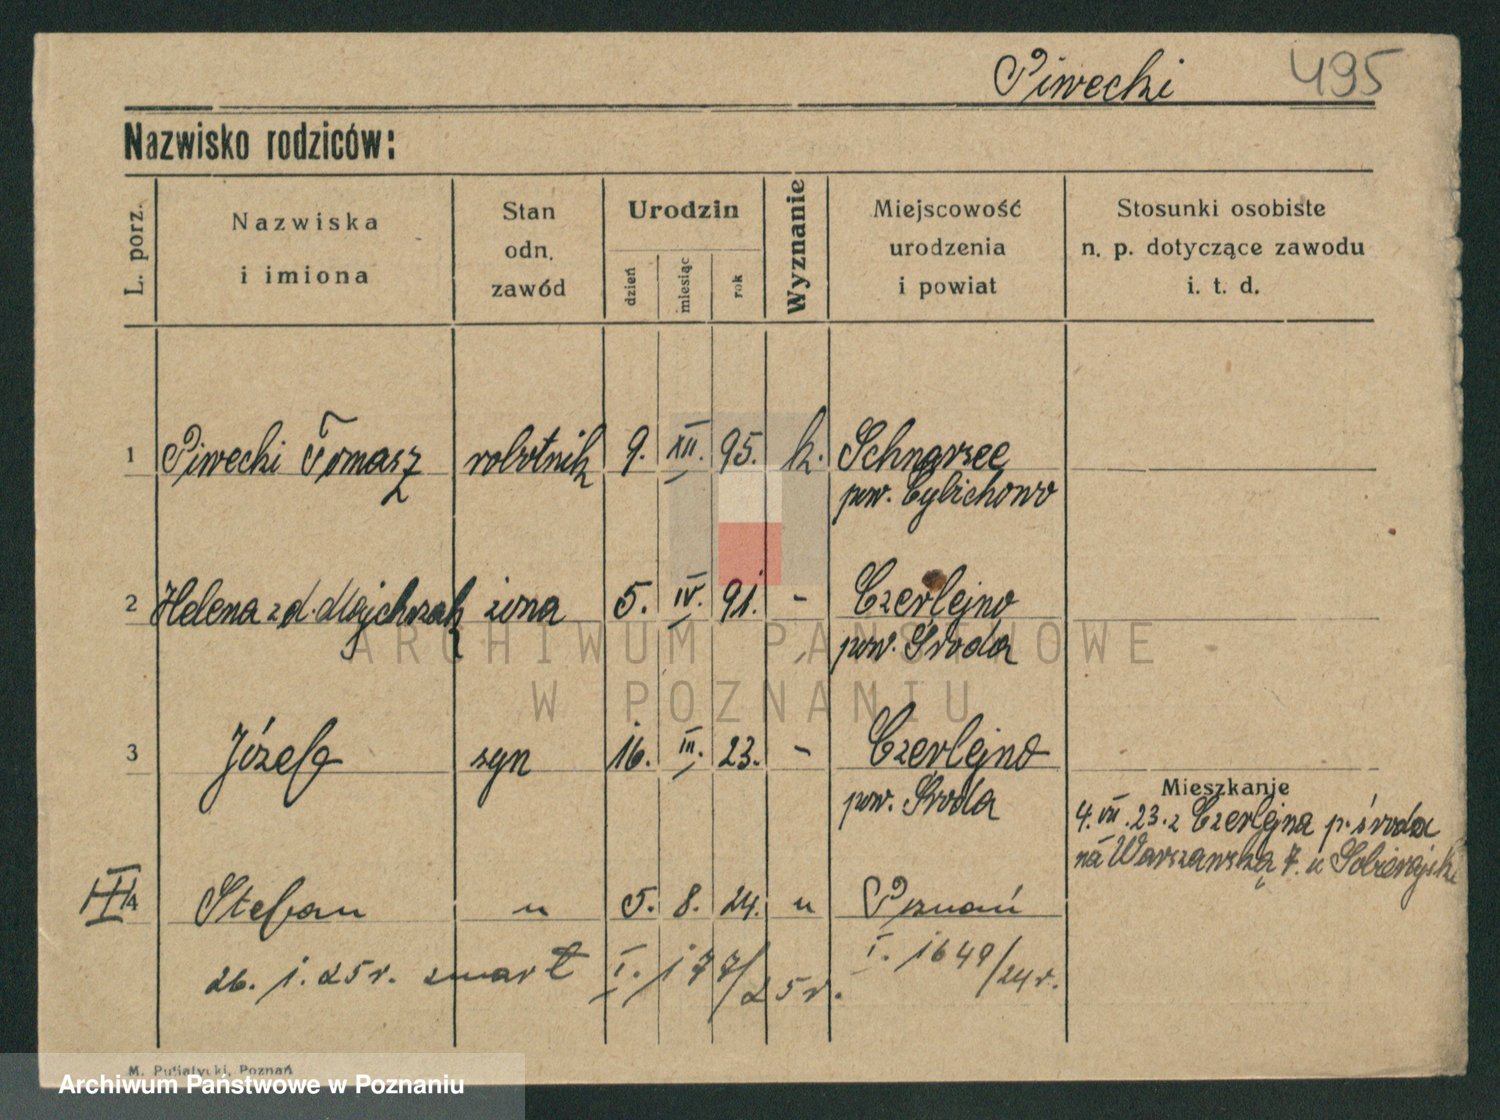 Piwecki 495
Nazwisko rodziców:
L. porz.
Nazwiska
i imiona
Stan
odn.
zawód
Urodzin
dzień miesiąc rok
Wyznanie
Miejscowość
urodzenia
i powiat
Stosunki osobiste
n. p. dotyczące zawodu
i. t. d.
1 Piwecki Tomasz robotnik 9. XII. 95. k. Schnarsee
pow. Cylichowo
2 Helena z d. Majchrzak żona 5. IV. 91. - Czerlejno
pow. Środa
3 Józefa syn 16. III. 23. - Czerlejno
pow. Środa
Mieszkanie
4. VII. 23. z Czerlejna p. środa
na Warszawską 7. u
4 Stefan " 5. 8. 24. " Poznań
I. 1649/24 r.
26. 1. 25 r. zmarł I. 177/25 r.
M. Putiatycki, Poznań
ARCHIWUM PAŃSTWOWE
W POZNANIU
Archiwum Państwowe w Poznaniu